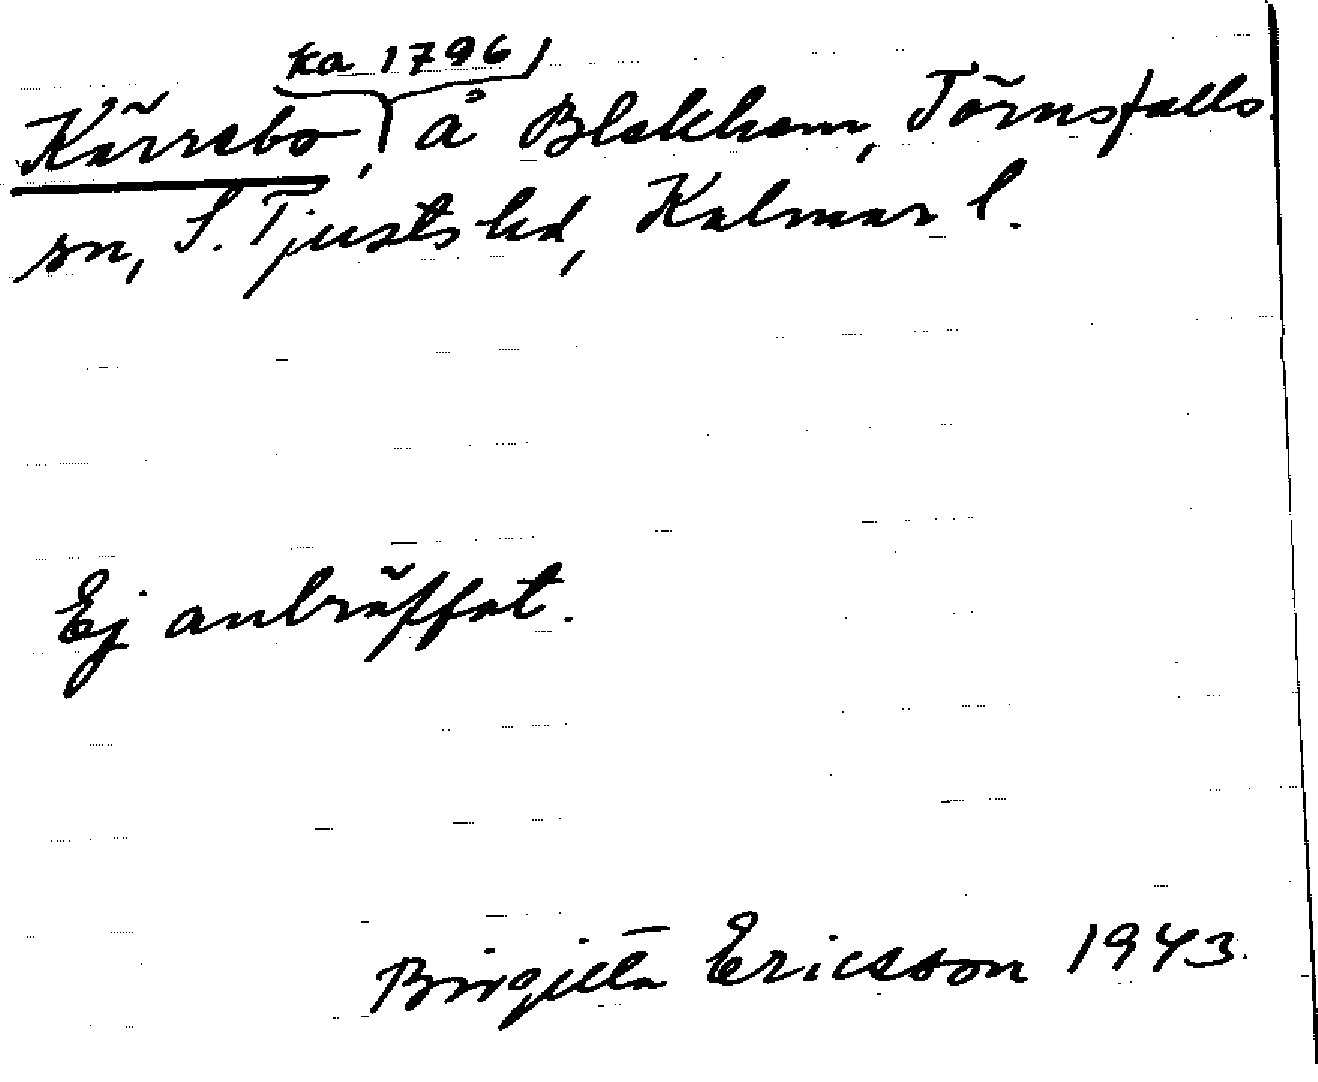 ka 1796
Kärrabo, å Blekhem, Törnsfalls
sn, S. Tjusts hd, Kalmar l.
Ej anträffat.
Birgitta Ericsson 1943.